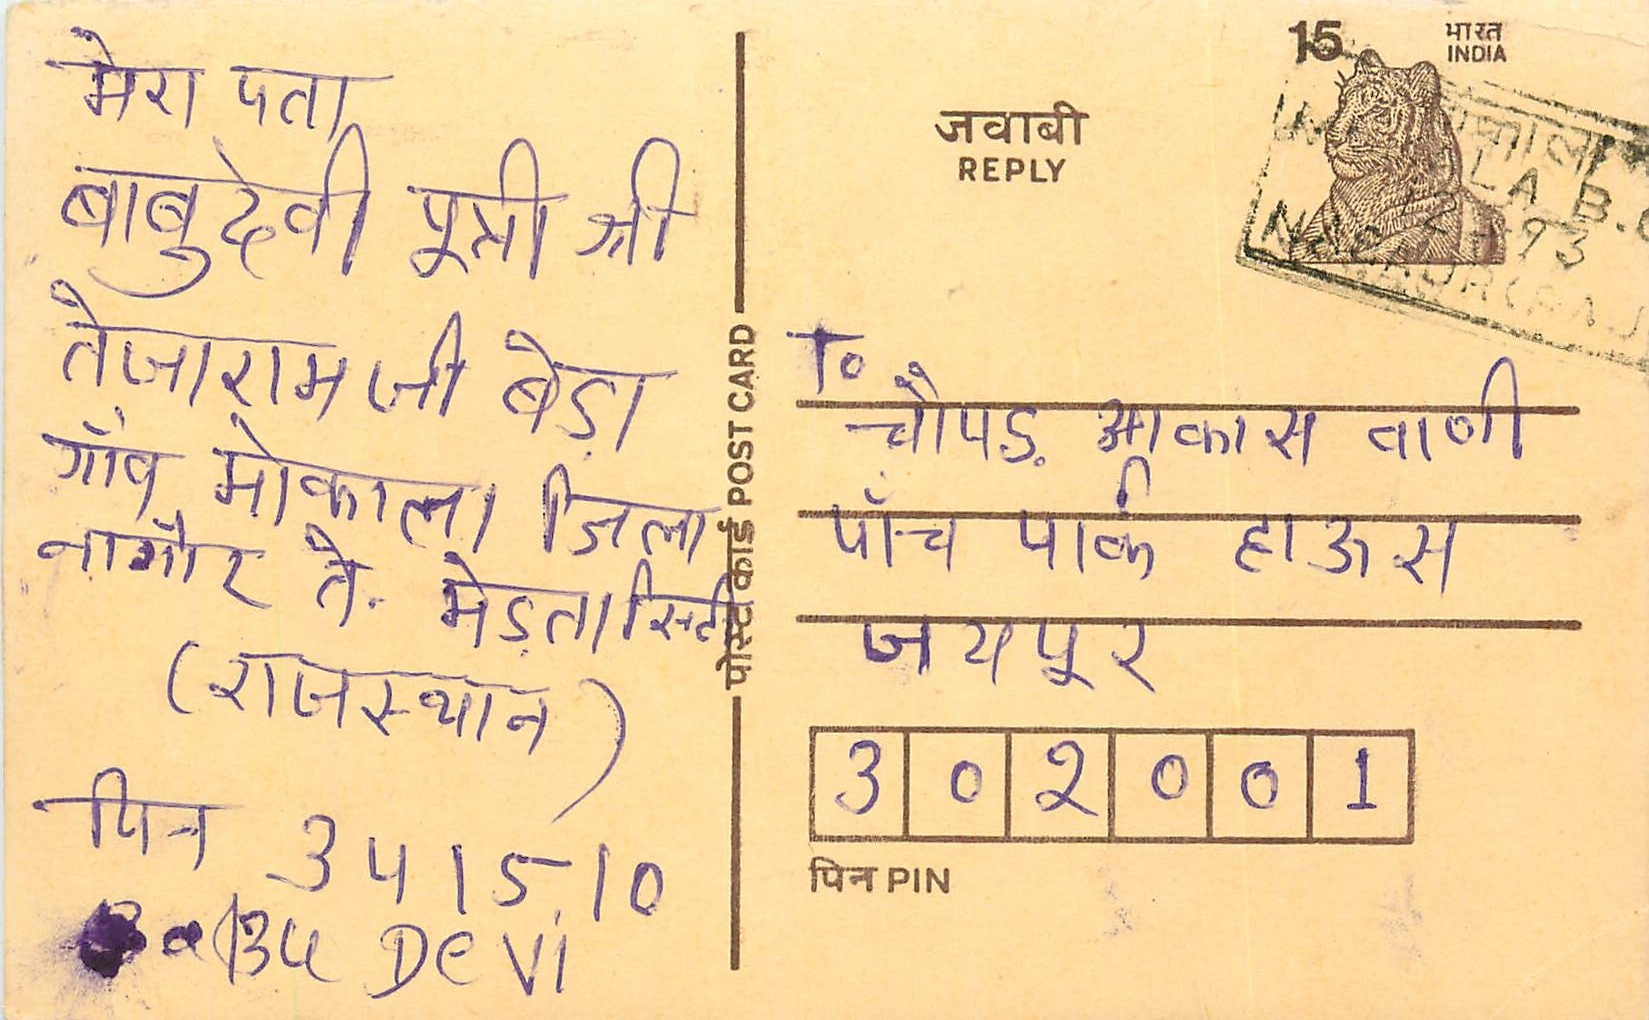 मेरा पता
बाबुदेवी पूत्री श्री
तेजाराम जी बेड़ा
गाँव मोकाला जिला
नागौर ते. मेड़ता सिटी
(राजस्थान)
पिन 341510
BaBu DeVi
पोस्ट कार्ड POST CARD
15
भारत
INDIA
जवाबी
REPLY
To
चौपड़ आकास वाणी
पाँच पार्क हाऊस
जयपूर
302001
पिन PIN